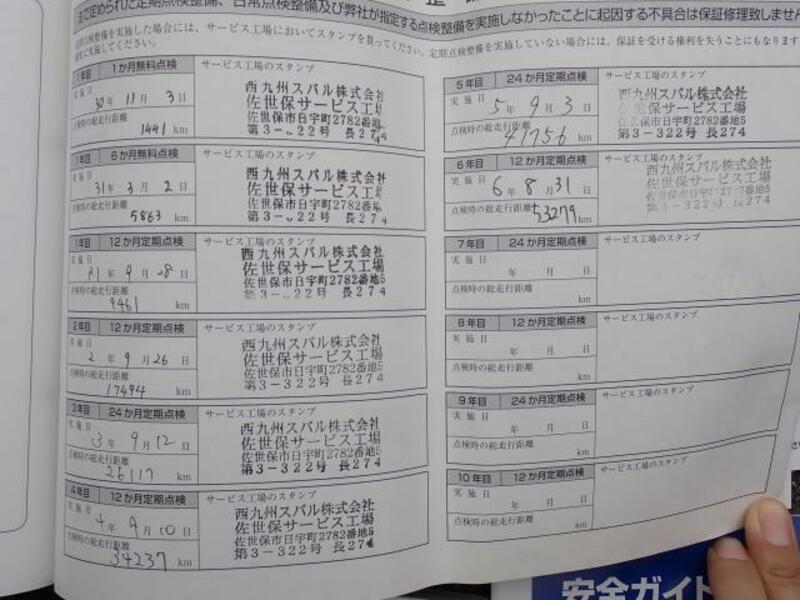 法で定められた定期点検整備、日常点検整備及び弊社が指定する点検整備を実施しなかったことに起因する不具合は保証修理致しません
定期点検整備を実施した場合には、サービス工場においてスタンプを貰ってください。定期点検整備を実施していない場合には、保証を受ける権利を失うことになります
実に実施してください。
1年目 1か月無料点検 サービス工場のスタンプ
実施日 30年 11月 3日
点検時の総走行距離
1441 km
西九州スバル株式会社
佐世保サービス工場
佐世保市日宇町2782番地
第3-22号 長274
1年目 6か月無料点検 サービス工場のスタンプ
実施日 31年 3月 2日
点検時の総走行距離
5863 km
西九州スバル株式会社
佐世保サービス工場
佐世保市日宇町2782番地
第3-22号 長274
1年目 12か月定期点検 サービス工場のスタンプ
実施日 R1年 9月 28日
点検時の総走行距離
9461 km
西九州スバル株式会社
佐世保サービス工場
佐世保市日宇町2782番地5
第3-22号 長274
2年目 12か月定期点検 サービス工場のスタンプ
実施日 2年 9月 26日
点検時の総走行距離
17494 km
西九州スバル株式会社
佐世保サービス工場
佐世保市日宇町2782番地5
第3-322号 長274
3年目 24か月定期点検 サービス工場のスタンプ
実施日 3年 9月 12日
点検時の総走行距離
26117 km
西九州スバル株式会社
佐世保サービス工場
佐世保市日宇町2782番地5
第3-322号 長274
4年目 12か月定期点検 サービス工場のスタンプ
実施日 4年 9月 10日
点検時の総走行距離
34237 km
西九州スバル株式会社
佐世保サービス工場
佐世保市日宇町2782番地5
第3-322号 長274
5年目 24か月定期点検 サービス工場のスタンプ
実施日 5年 9月 3日
点検時の総走行距離
41756 km
西九州スバル株式会社
佐世保サービス工場
佐世保市日宇町2782番地5
第3-322号 長274
6年目 12か月定期点検 サービス工場のスタンプ
実施日 6年 8月 31日
点検時の総走行距離
53279 km
西九州スバル株式会社
佐世保サービス工場
佐世保市日宇町2782番地5
長274
7年目 24か月定期点検 サービス工場のスタンプ
実施日 年 月 日
点検時の総走行距離
km
8年目 12か月定期点検 サービス工場のスタンプ
実施日 年 月 日
点検時の総走行距離
km
9年目 24か月定期点検 サービス工場のスタンプ
実施日 年 月 日
点検時の総走行距離
km
10年目 12か月定期点検 サービス工場のスタンプ
実施日 年 月 日
点検時の総走行距離
km
安全ガイド